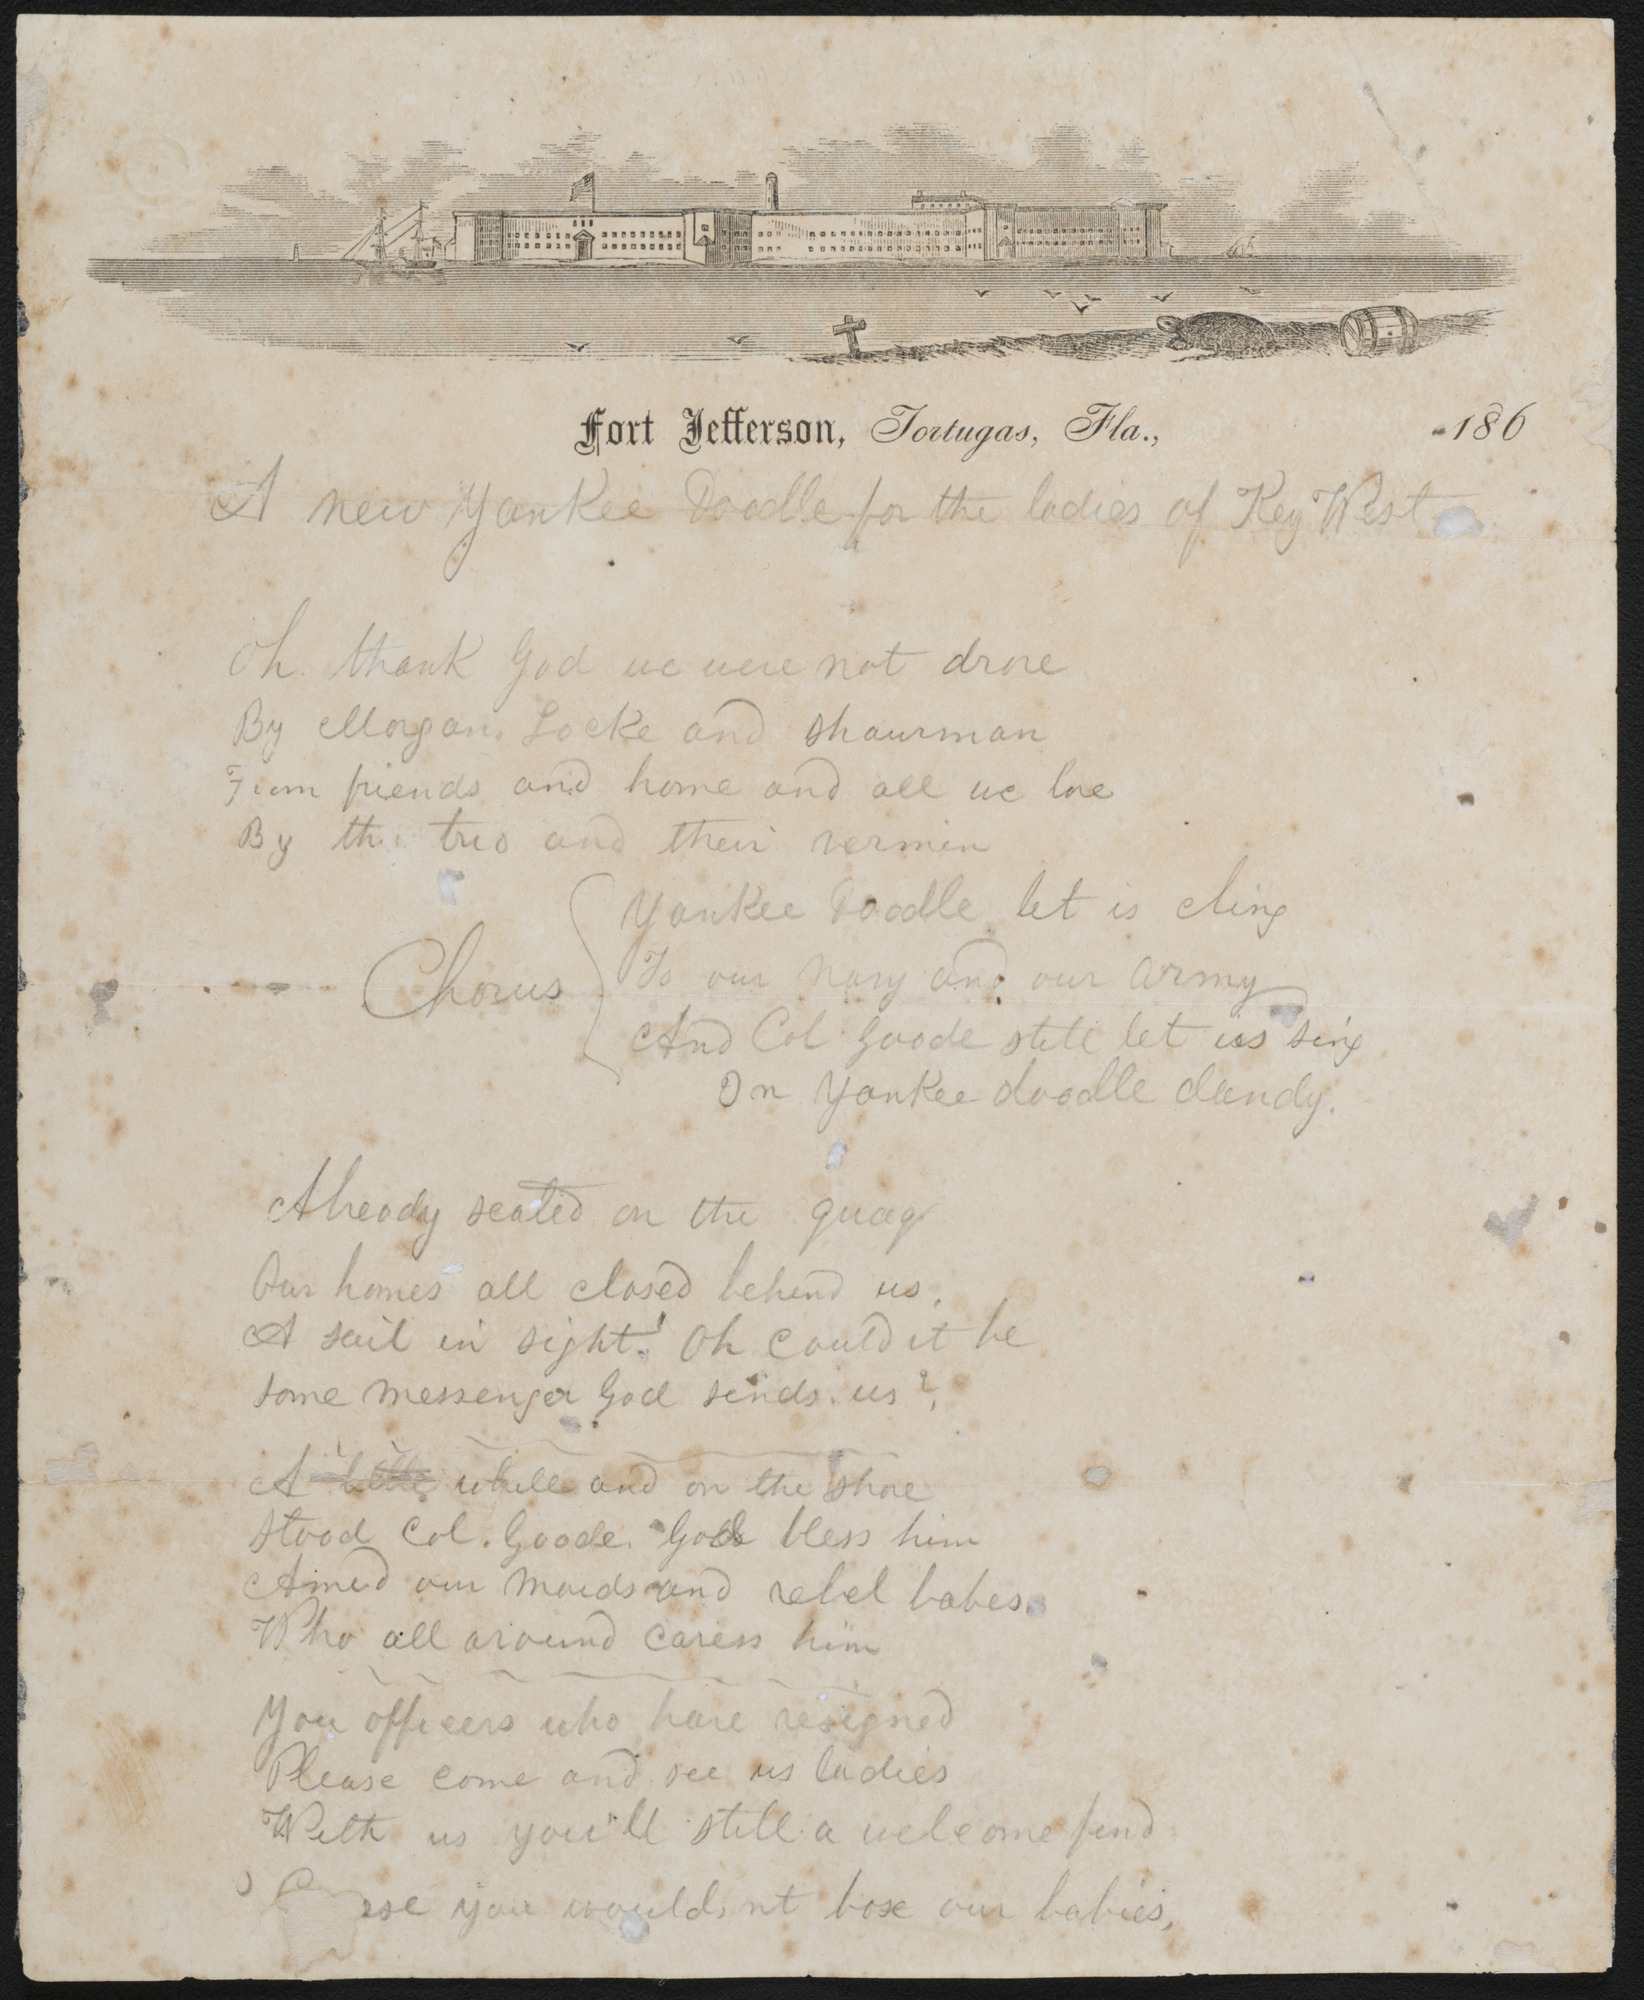 Fort Jefferson, Tortugas, Fla., 186
A new Yankee Doodle for the ladies of Key West
Oh. thank God we were not drove
By Morgan. Locke and Shaurman
From friends and home and all we love
By th. trio and their vermin
Chorus
Yankee Doodle let is cling
To our navy and our army
And Col Goode still let us sing
On Yankee doodle dandy.
Already seated on the quay
Our homes all closed behind us.
A sail in sight! Oh could it be
Some messenger God sends us?
A little while and on the shore
Stood Col. Goode. God bless him
Amid our maids and rebel babes.
Who all around caress him
You officers who have resigned
Please come and see us ladies
With us you'll still a welcome find
you would,nt box our babies,